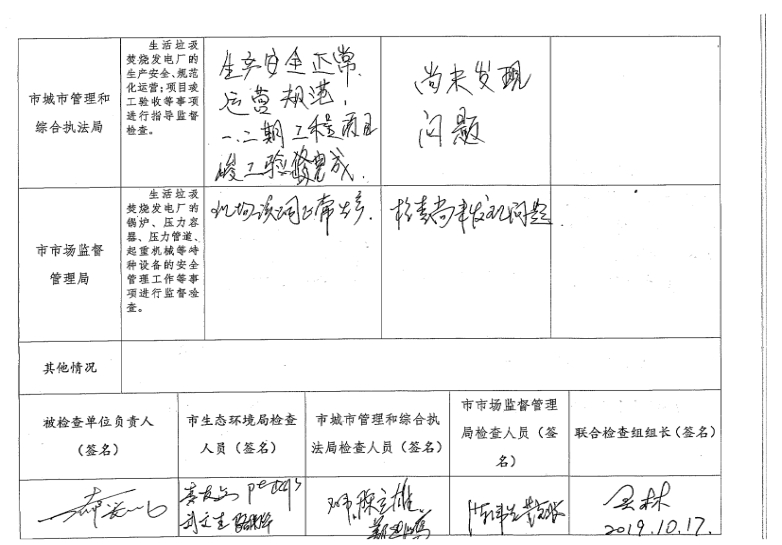 市城市管理和
综合执法局
生活垃圾
焚烧发电厂的
生产安全、规范
化运营；项目竣
工验收等事项
进行指导监督
检查。
生产安全正常，
运营规范，
一、二期工程项目
竣工验收完成。
尚未发现
问题
市市场监督
管理局
生活垃圾
焚烧发电厂的
锅炉、压力容
器、压力管道、
起重机械等特
种设备的安全
管理工作等事
项进行监督检
查。
检查尚未发现问题
其他情况
被检查单位负责人
（签名）
市生态环境局检查
人员（签名）
市城市管理和综合执
法局检查人员（签名）
市市场监督管理
局检查人员（签
名）
联合检查组组长（签名）
2019.10.17.